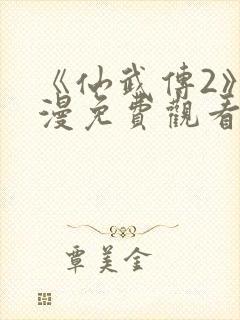 《仙武傳2》
漫免費觀看
覃美金